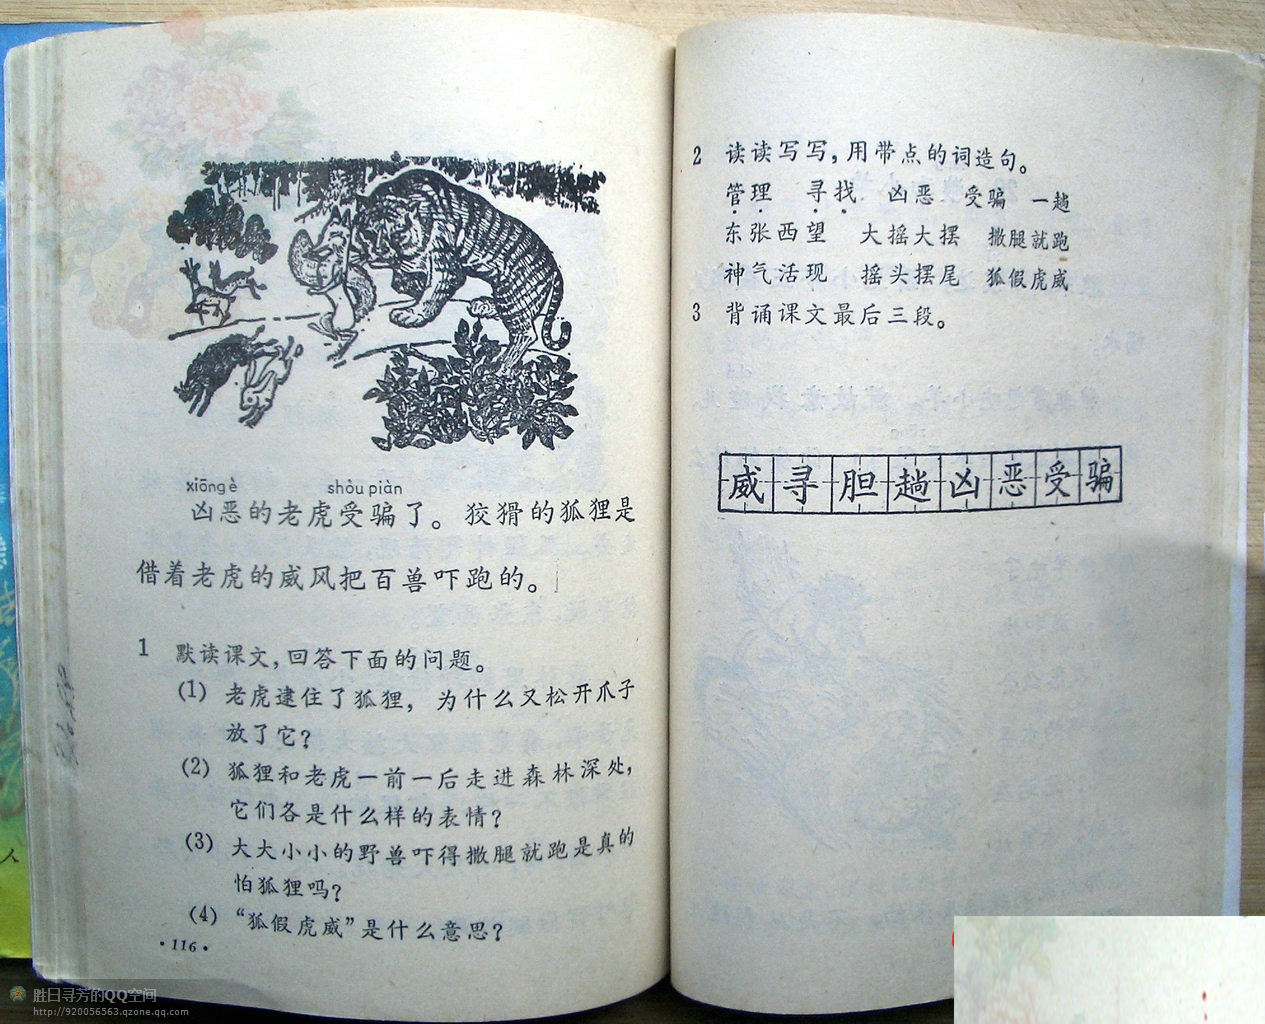 xiōng è shòu piàn
凶恶的老虎受骗了。狡猾的狐狸是
借着老虎的威风把百兽吓跑的。
1 默读课文,回答下面的问题。
(1) 老虎逮住了狐狸,为什么又松开爪子
放了它?
(2) 狐狸和老虎一前一后走进森林深处,
它们各是什么样的表情?
(3) 大大小小的野兽吓得撒腿就跑是真的
怕狐狸吗?
(4) “狐假虎威”是什么意思?
·116·
2 读读写写,用带点的词造句。
管理 寻找 凶恶 受骗 一趟
东张西望 大摇大摆 撒腿就跑
神气活现 摇头摆尾 狐假虎威
3 背诵课文最后三段。
威寻胆趟凶恶受骗
人
胜日寻芳的QQ空间
http://920056563.qzone.qq.com